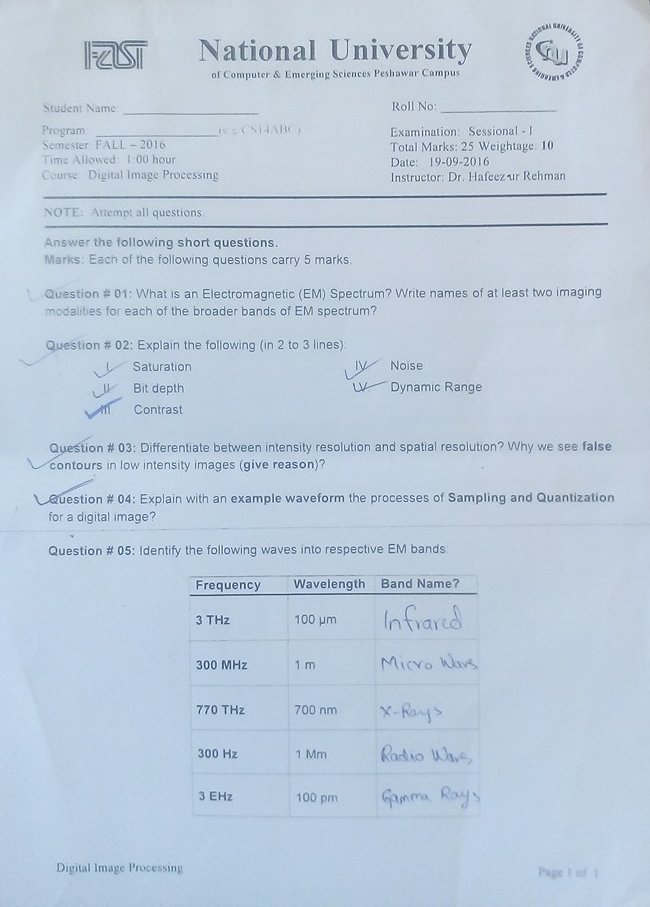 FAST
National University
of Computer & Emerging Sciences Peshawar Campus
Student Name:
Roll No:
Program: (e.g CS14ABC)
Examination: Sessional - I
Semester: FALL – 2016
Total Marks: 25 Weightage: 10
Time Allowed: 1:00 hour
Date: 19-09-2016
Course: Digital Image Processing
Instructor: Dr. Hafeez ur Rehman
NOTE: Attempt all questions.
Answer the following short questions.
Marks: Each of the following questions carry 5 marks.
Question # 01: What is an Electromagnetic (EM) Spectrum? Write names of at least two imaging
modalities for each of the broader bands of EM spectrum?
Question # 02: Explain the following (in 2 to 3 lines):
I. Saturation
IV. Noise
II. Bit depth
V. Dynamic Range
III. Contrast
Question # 03: Differentiate between intensity resolution and spatial resolution? Why we see false
contours in low intensity images (give reason)?
Question # 04: Explain with an example waveform the processes of Sampling and Quantization
for a digital image?
Question # 05: Identify the following waves into respective EM bands.
Frequency Wavelength Band Name?
3 THz 100 µm Infrared
300 MHz 1 m Micro Wave
770 THz 700 nm X-Rays
300 Hz 1 Mm Radio Wave
3 EHz 100 pm Gamma Rays
Digital Image Processing
Page 1 of 1